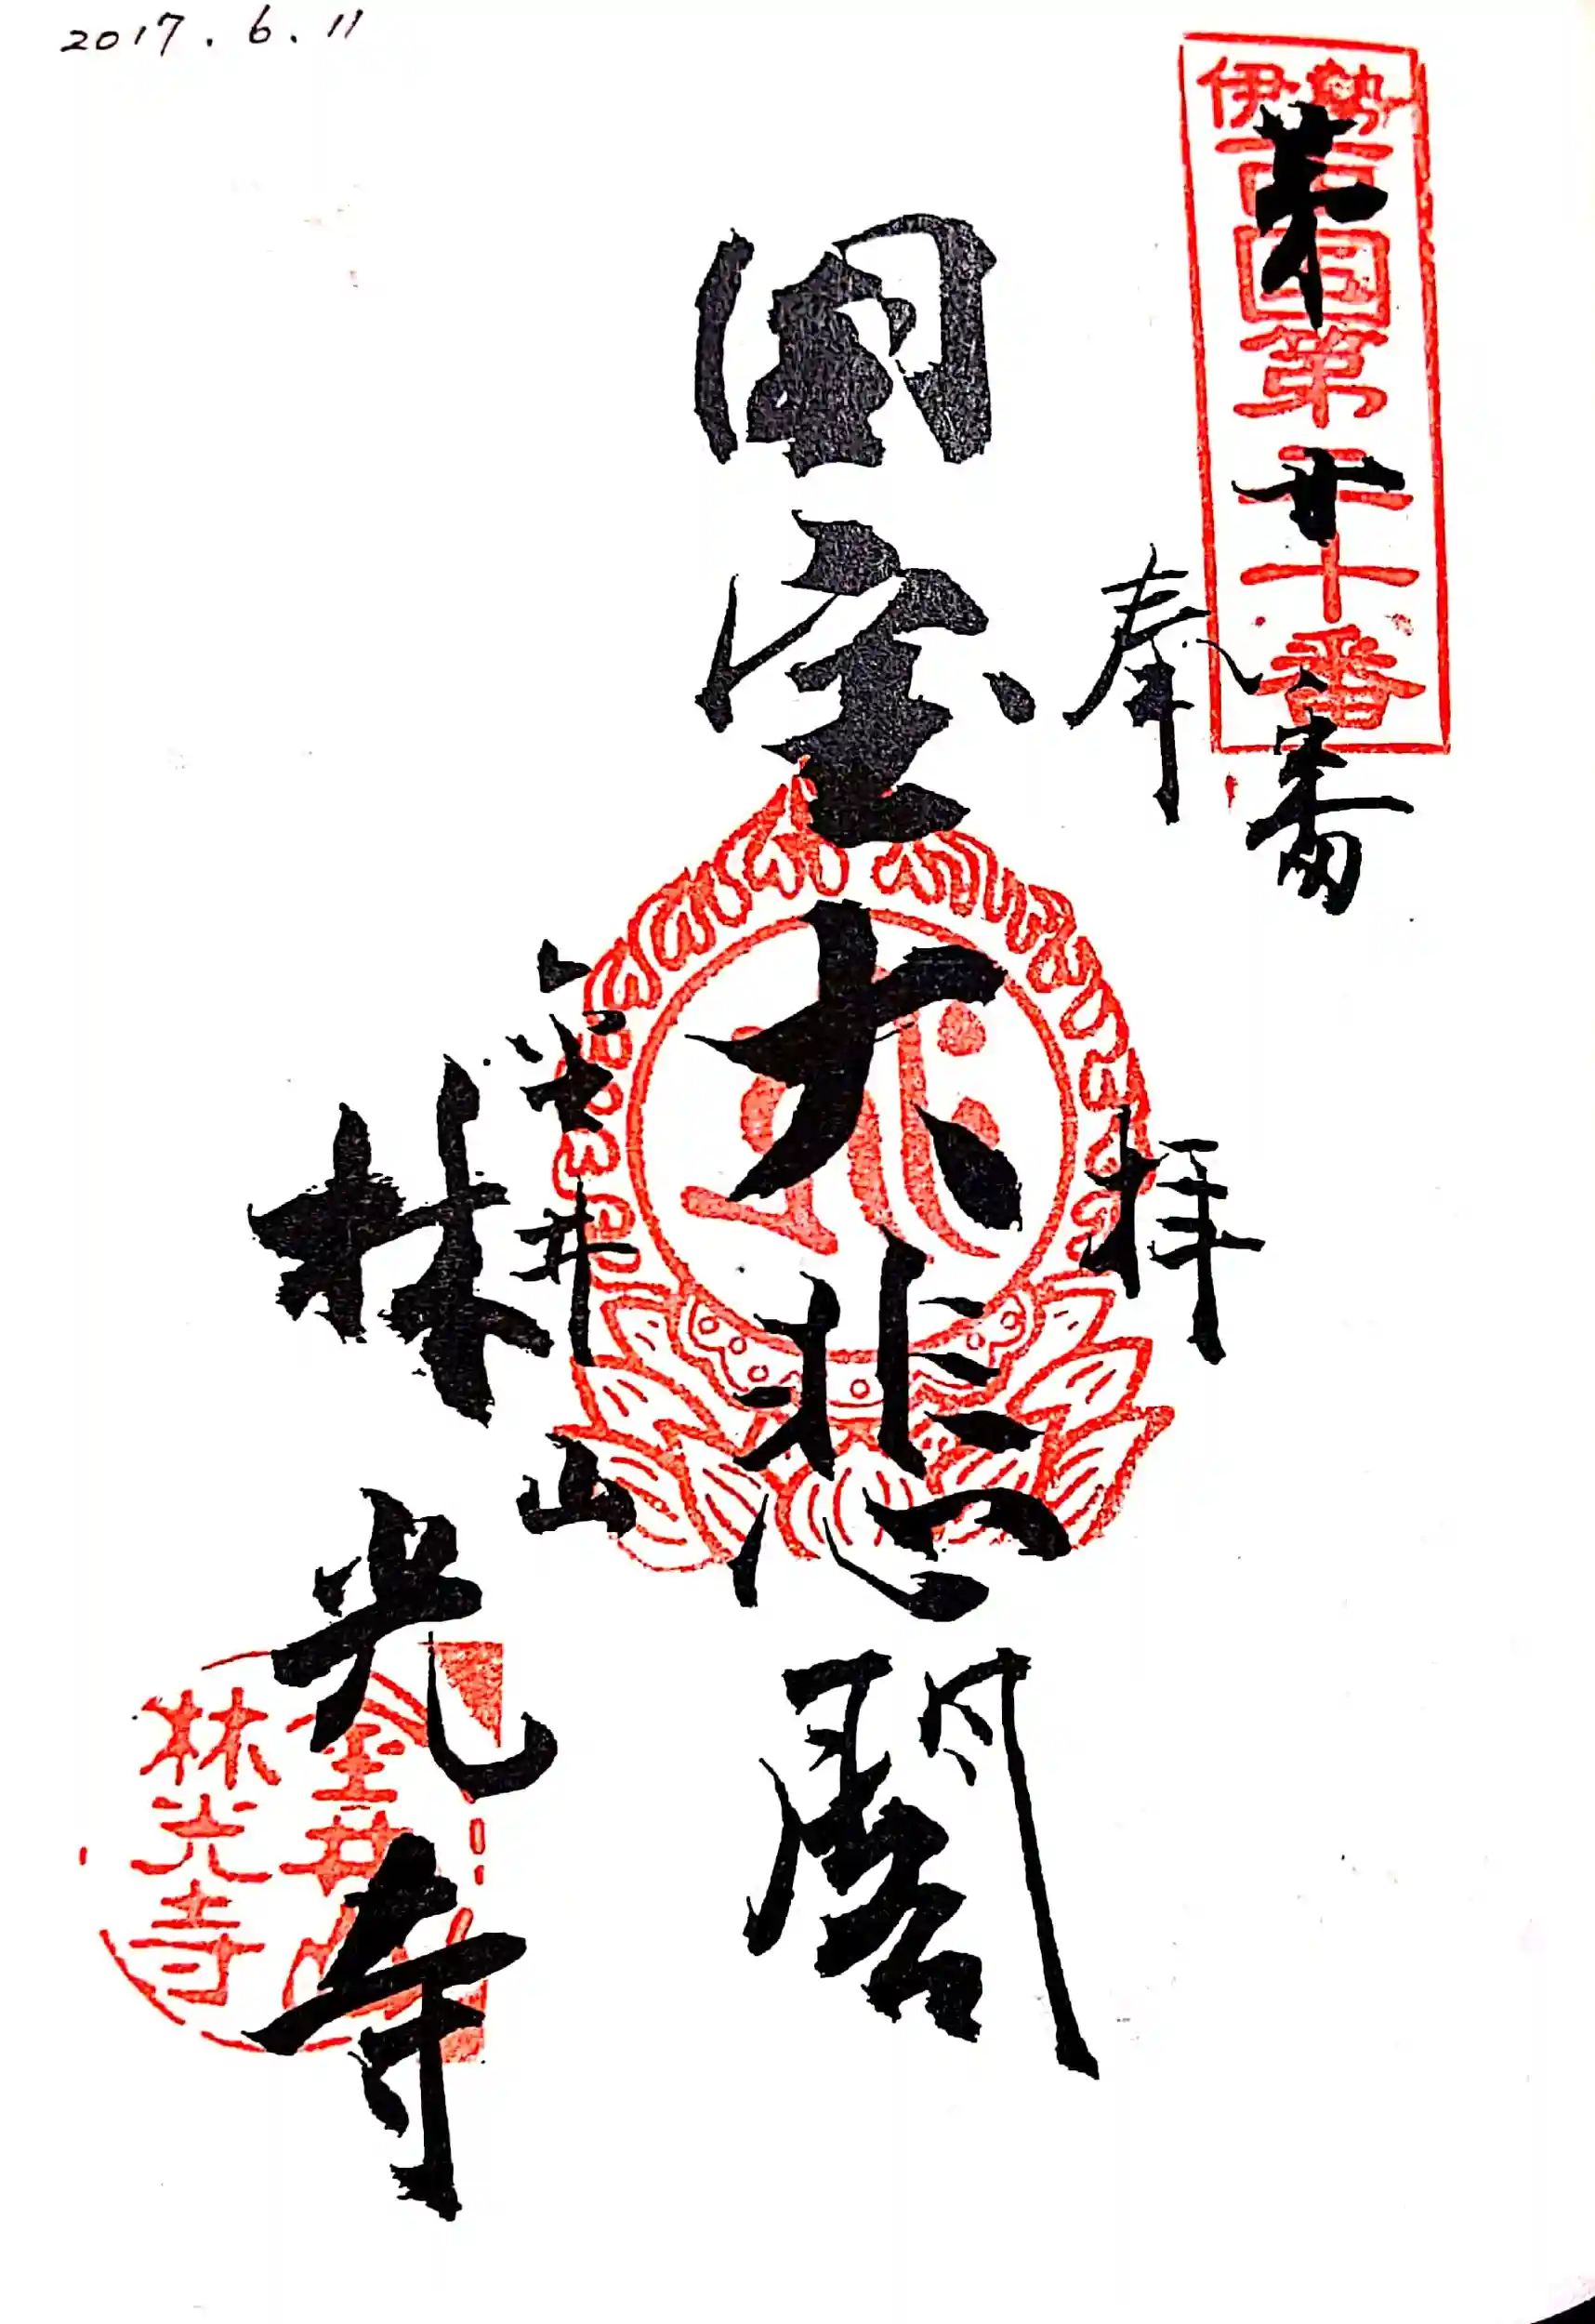 2017.6.11
伊勢西国第二十番
第廿番
奉拝
国宝大悲閣
金井山
林光寺
金井山
林光寺